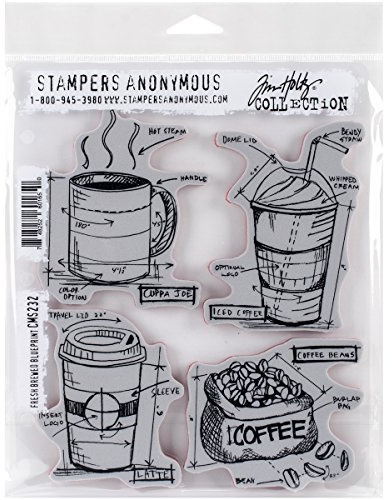 STAMPERS ANONYMOUS
1-800-945-3980 WWW.STAMPERSANONYMOUS.COM
Tim Holtz
COLLECTION
FRESH BREWED BLUEPRINT CMS232
HOT STEAM
HANDLE
180°
4½"
COLOR
OPTION
CUPPA JOE
DOME LID
BENDY
STRAW
WHIPPED
CREAM
OPTIONAL
LOGO
ICED COFFEE
TRAVEL LID 22°
SLEEVE
INSERT
LOGO
LATTE
COFFEE BEANS
BURLAP
BAG
COFFEE
BEAN